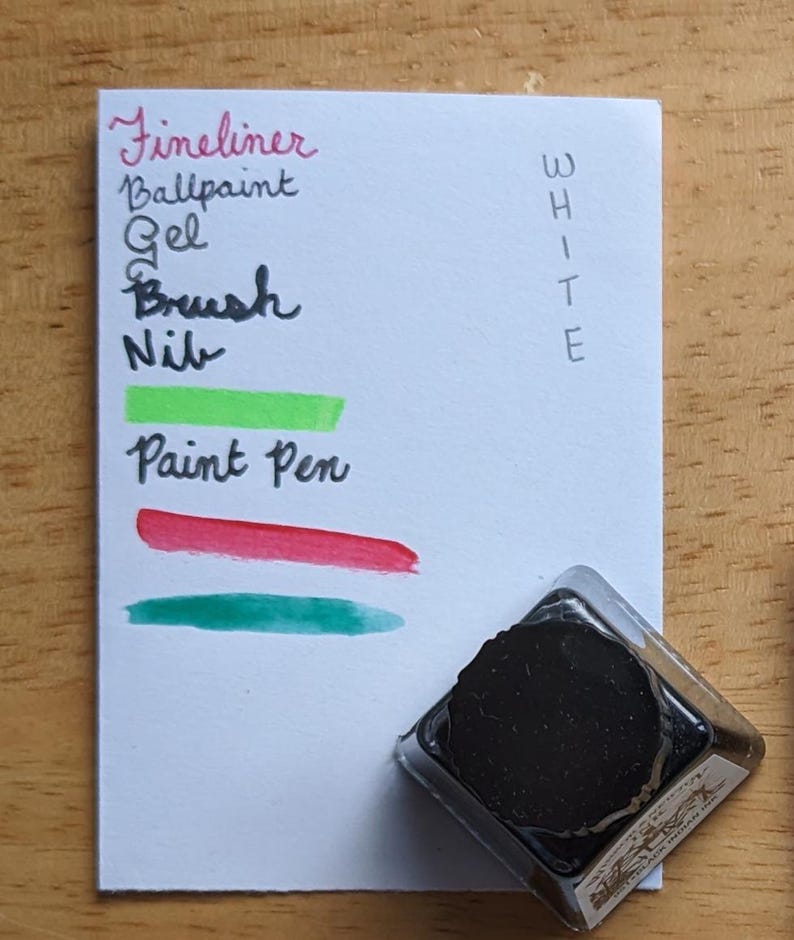 Fineliner
Ballpaint
Gel
Brush
Nib
Paint Pen
WHITE
BLACK INDIAN INK